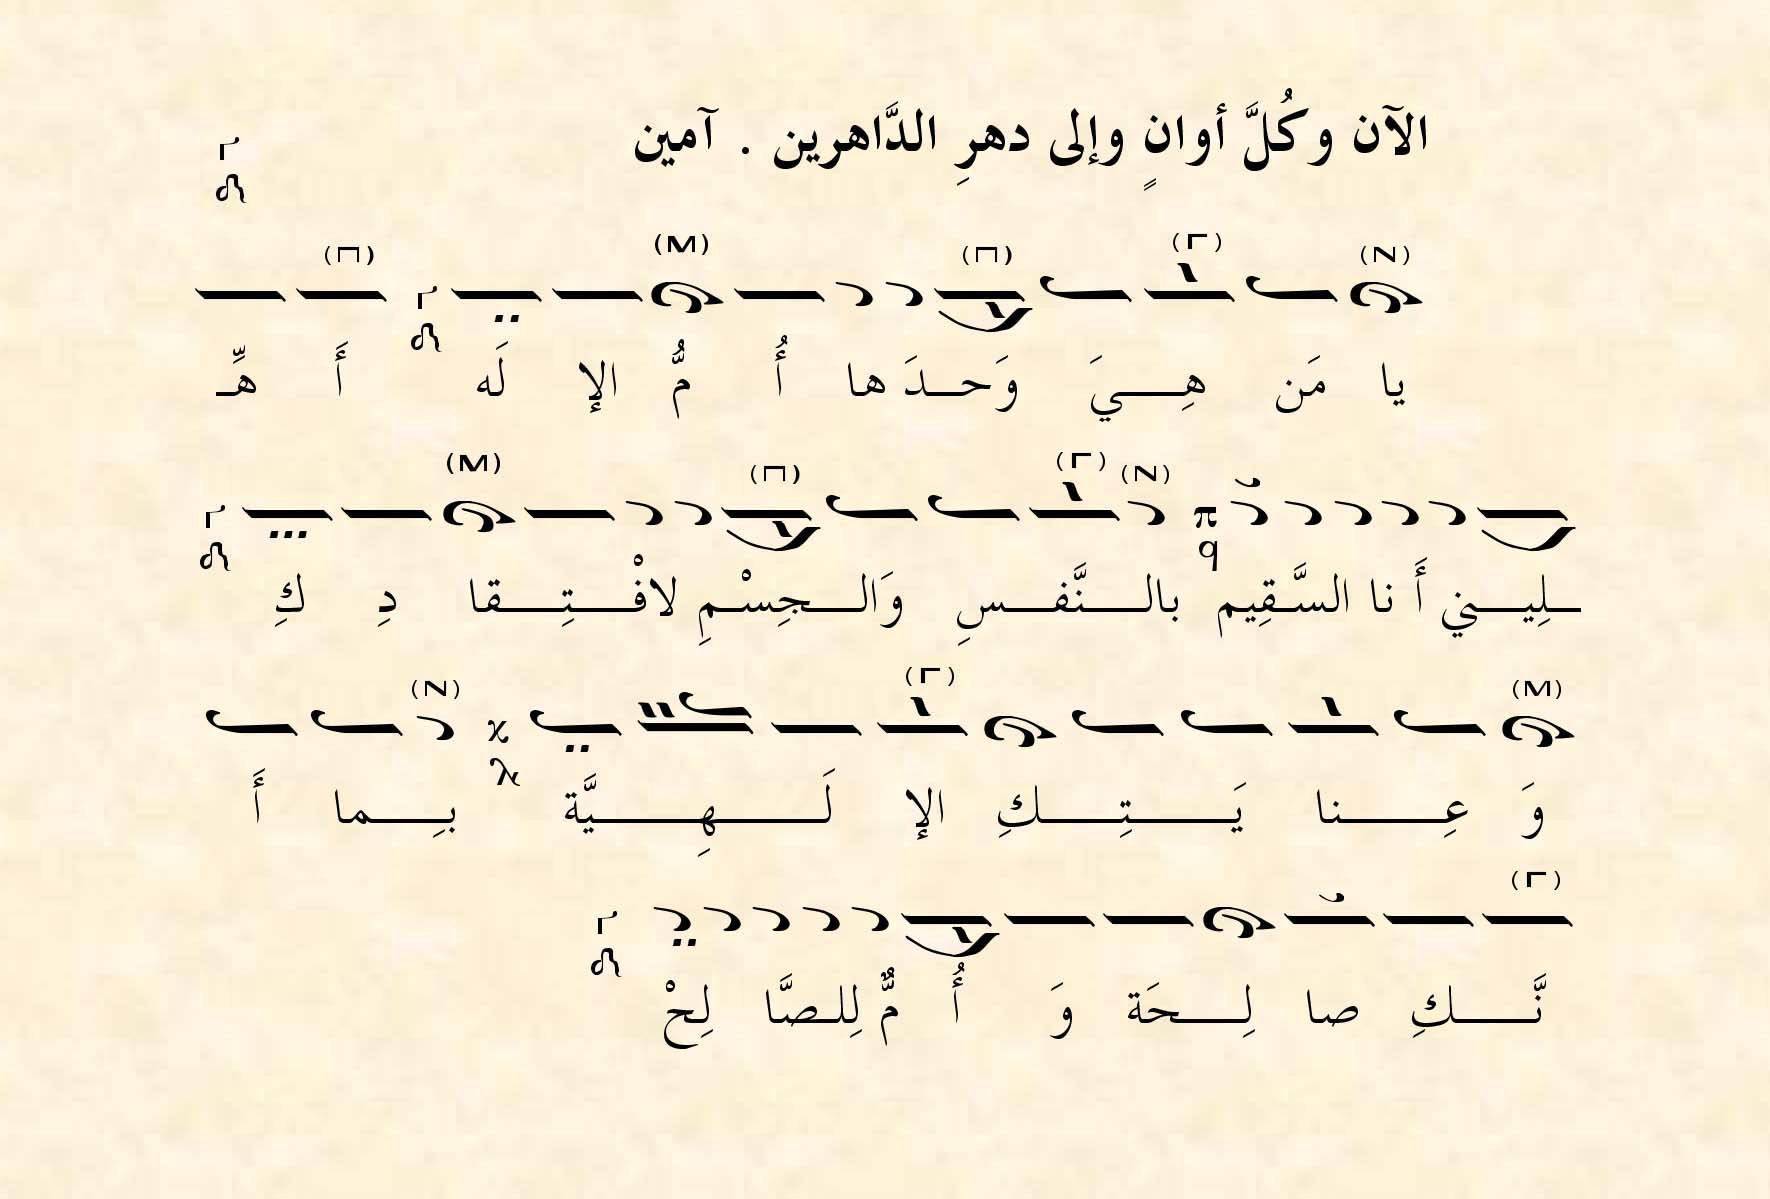 الآن وكُلَّ أوانٍ وإلى دهرِ الدَّاهرين . آمين
(N) (Γ) (Π) (M) (Π)
يا مَن هِـــيَ وَحــدَ ها أُ مُّ الإ لَه أَ هِّـ
π q (N) (Γ) (Π) (M)
ـلِيـــني أَ نا السَّـقِيم بالـــنَّفــسِ وَالــجِسْـمِ لافْـــتِــقا دِ كِ
(M) (Γ) χ λ (N)
وَ عِــــنا يَــــتِــــكِ الإ لَــــهِــــيَّة بــِـما أَ
(Γ)
نَّـــكِ صا لِـــحَة وَ أُ مٌّ لِلـصَّا لِحْ